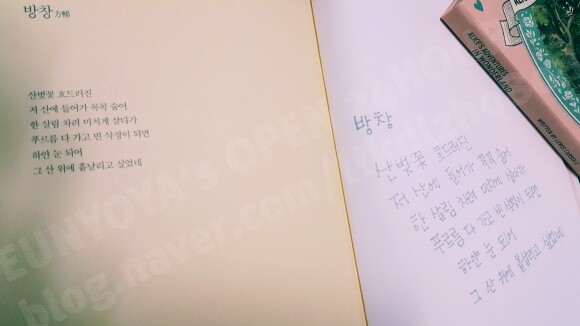 방창 方暢
산벚꽃 흐드러진
저 산에 들어가 꼭꼭 숨어
한 살림 차려 미치게 살다가
푸르름 다 가고 빈 삭정이 되면
하얀 눈 되어
그 산 위에 흩날리고 싶었네
방창
산벚꽃 흐드러진
저 산에 들어가 꼭꼭 숨어
한 살림 차려 미치게 살다가
푸르름 다 가고 빈 삭정이 되면
하얀 눈 되어
그 산 위에 흩날리고 싶었네
ALICE'S ADVENTURES
IN WONDERLAND
EUNYOYA'S
blog.naver.com/